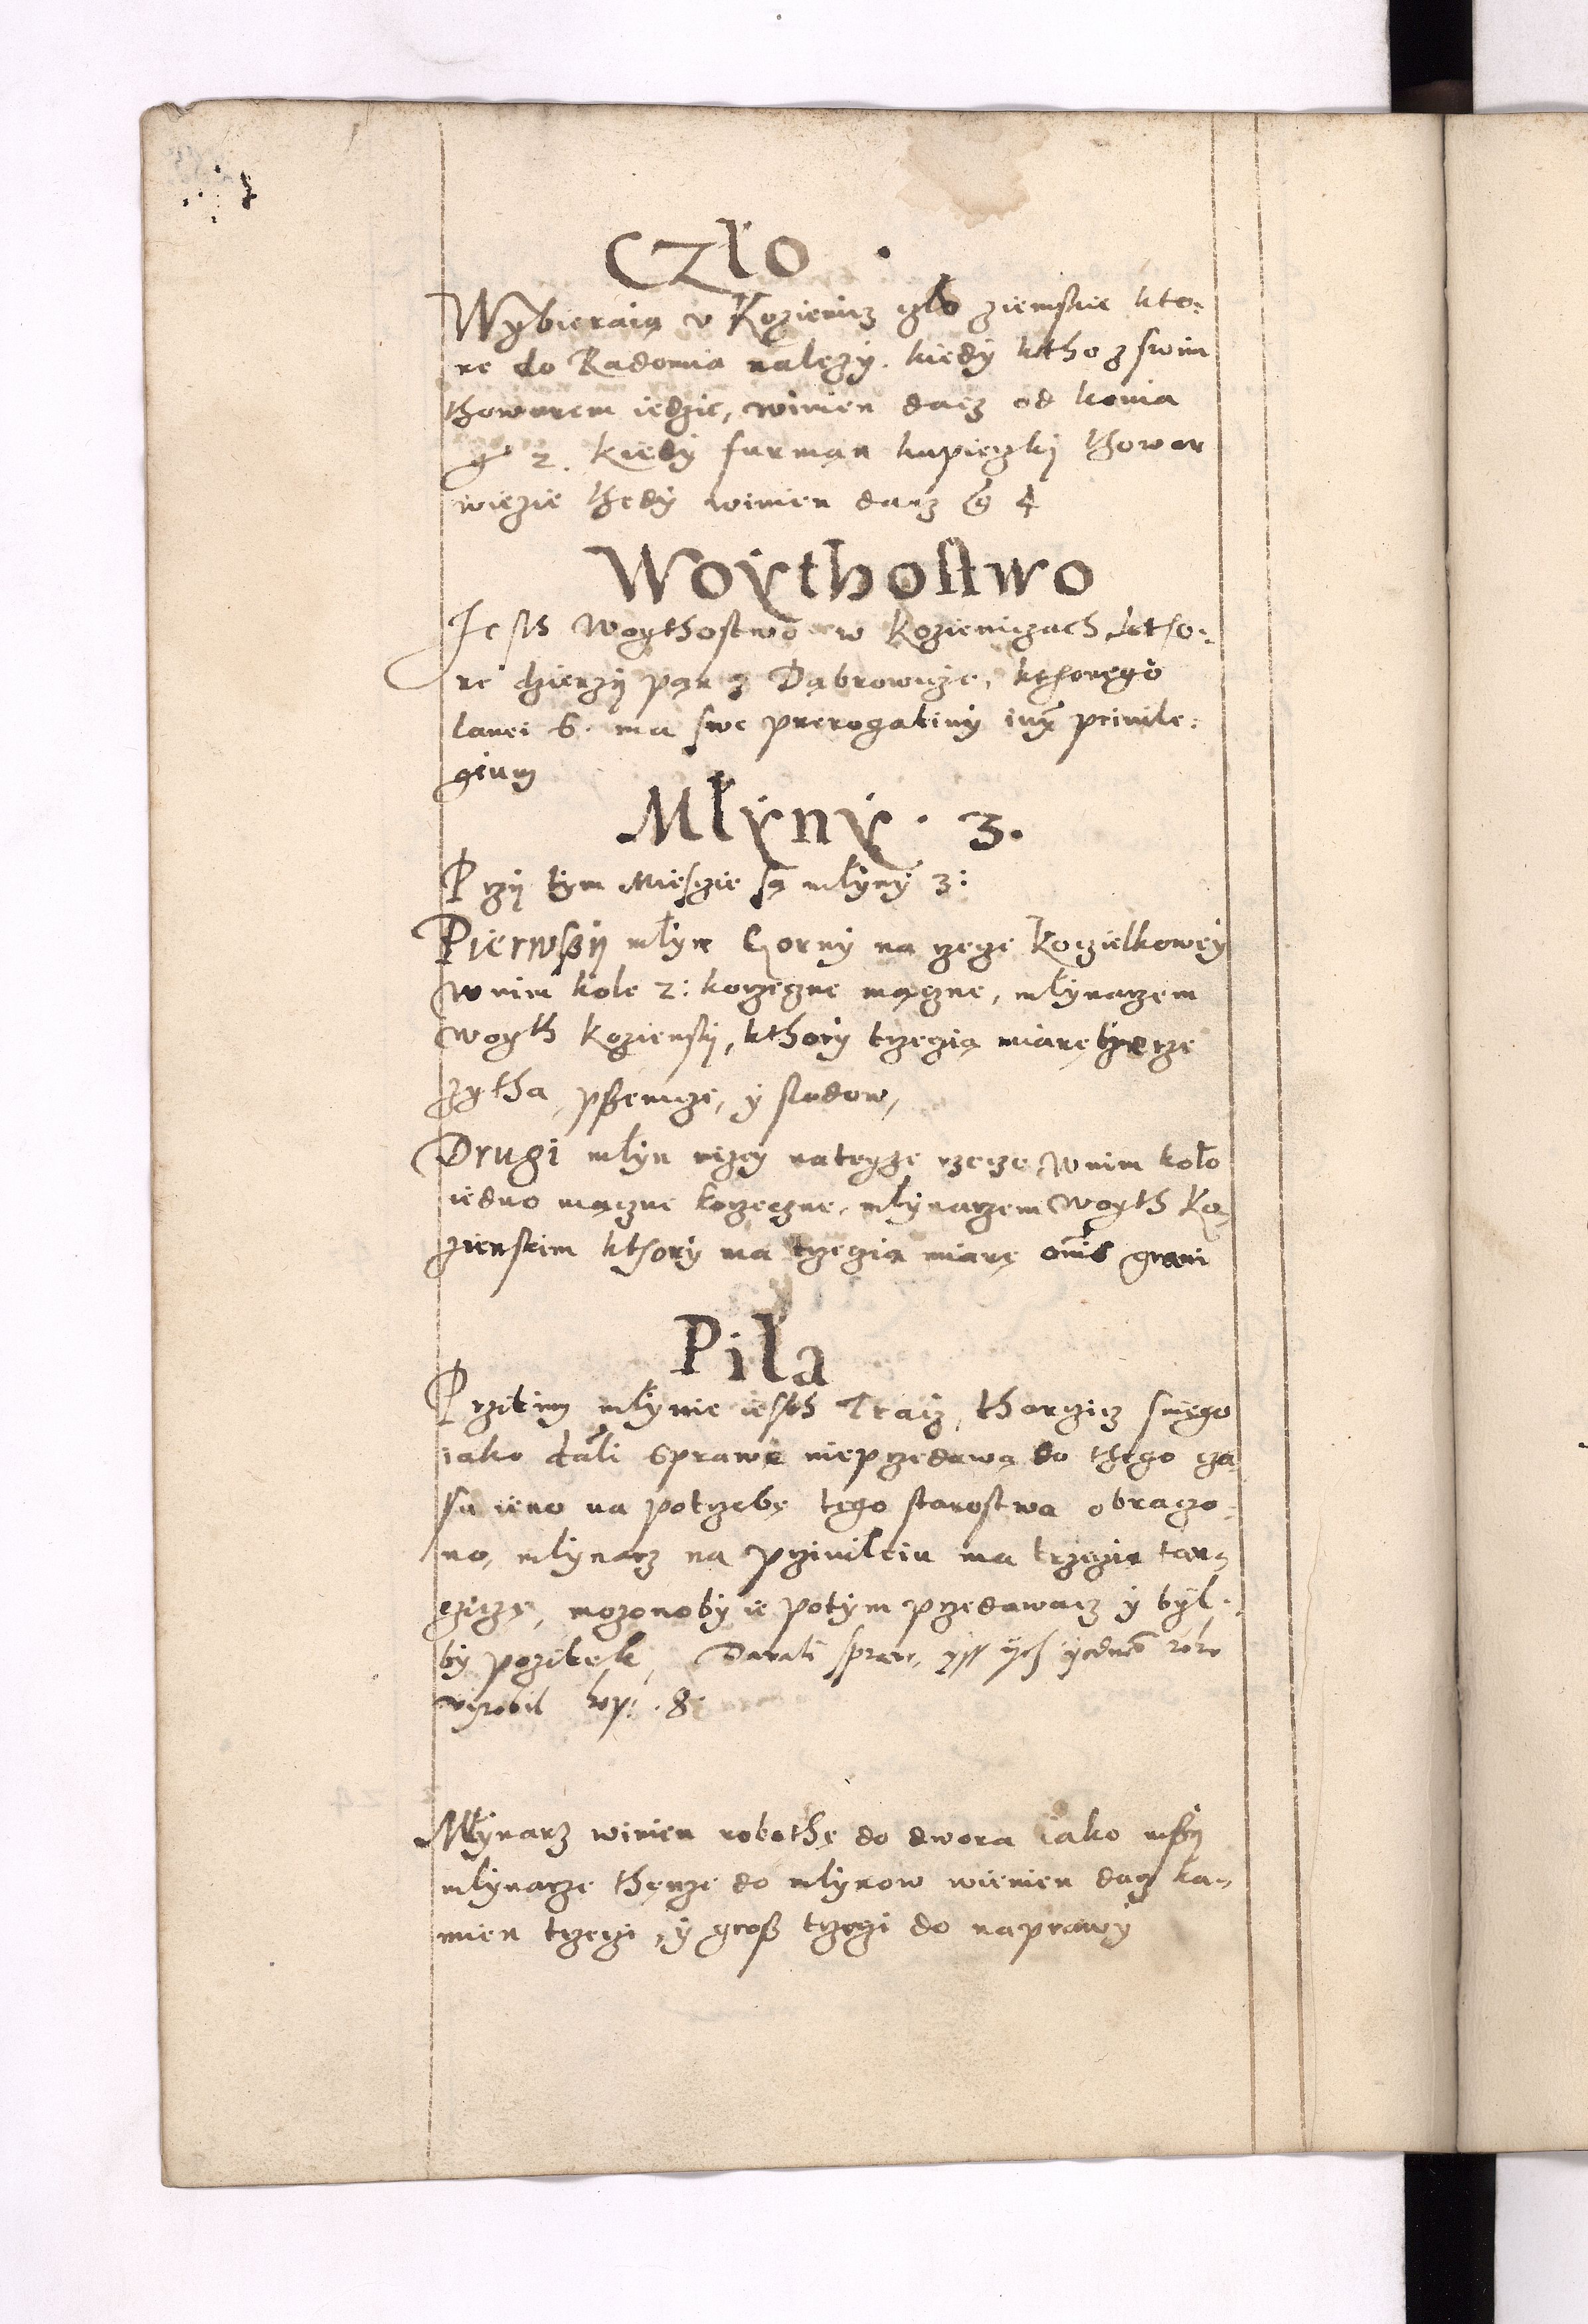 Czło .
Wybieraią v Kozienicz czło ziemskie kto-
re do Radomia należy. kiedy ktho z swim
thowarem iedzie, winien dacz od konia
gr 2. kiedy furman kupieczkj thowar
wiezie thedy winien dacz gr 4
Woythostwo
Jesth Woythostwo w Kozieniczach ktho-
re dzierzy pan z Dąbrowicze, kthorego
lanei 6. ma swe prerogatiuy priuile-
gium
Młyny . 3.
Przy tym Miesczie są młyny 3:
Pierwszy młyn Gorny na rzecze Koziełkowey
w nim kole 2: korzeczne mączne, młynarzem
woyth Kozienskj, kthory trzeczią miarę bierze
zytha, pszenicze, y słodow,
Drugi młyn nizey na teyze rzecze w nim koło
iedno mączne korzeczne, młynarzem Woyth Ko-
zienskim kthory ma trzeczią miarę omnis grani
Piła
Przitim młynie iesth Tracz, tharczicz sniego
iako dali sprawę nieprzedawą do thego cza-
su ieno na potrzebę tego starostwa obraczo-
no, młynarz na prziuileiu ma trzeczią tar-
czicze, mozonoby ie potym przedawacz y był-
by pozitek, Dawali spraw, ysz ych yednem roku
virobil kop: .8.
Młynarz winien robothę do dwora iako inszy
młynarze thenze do młynow winien dacz ka-
mien trzeczi, y grosz trzeczi do naprawy